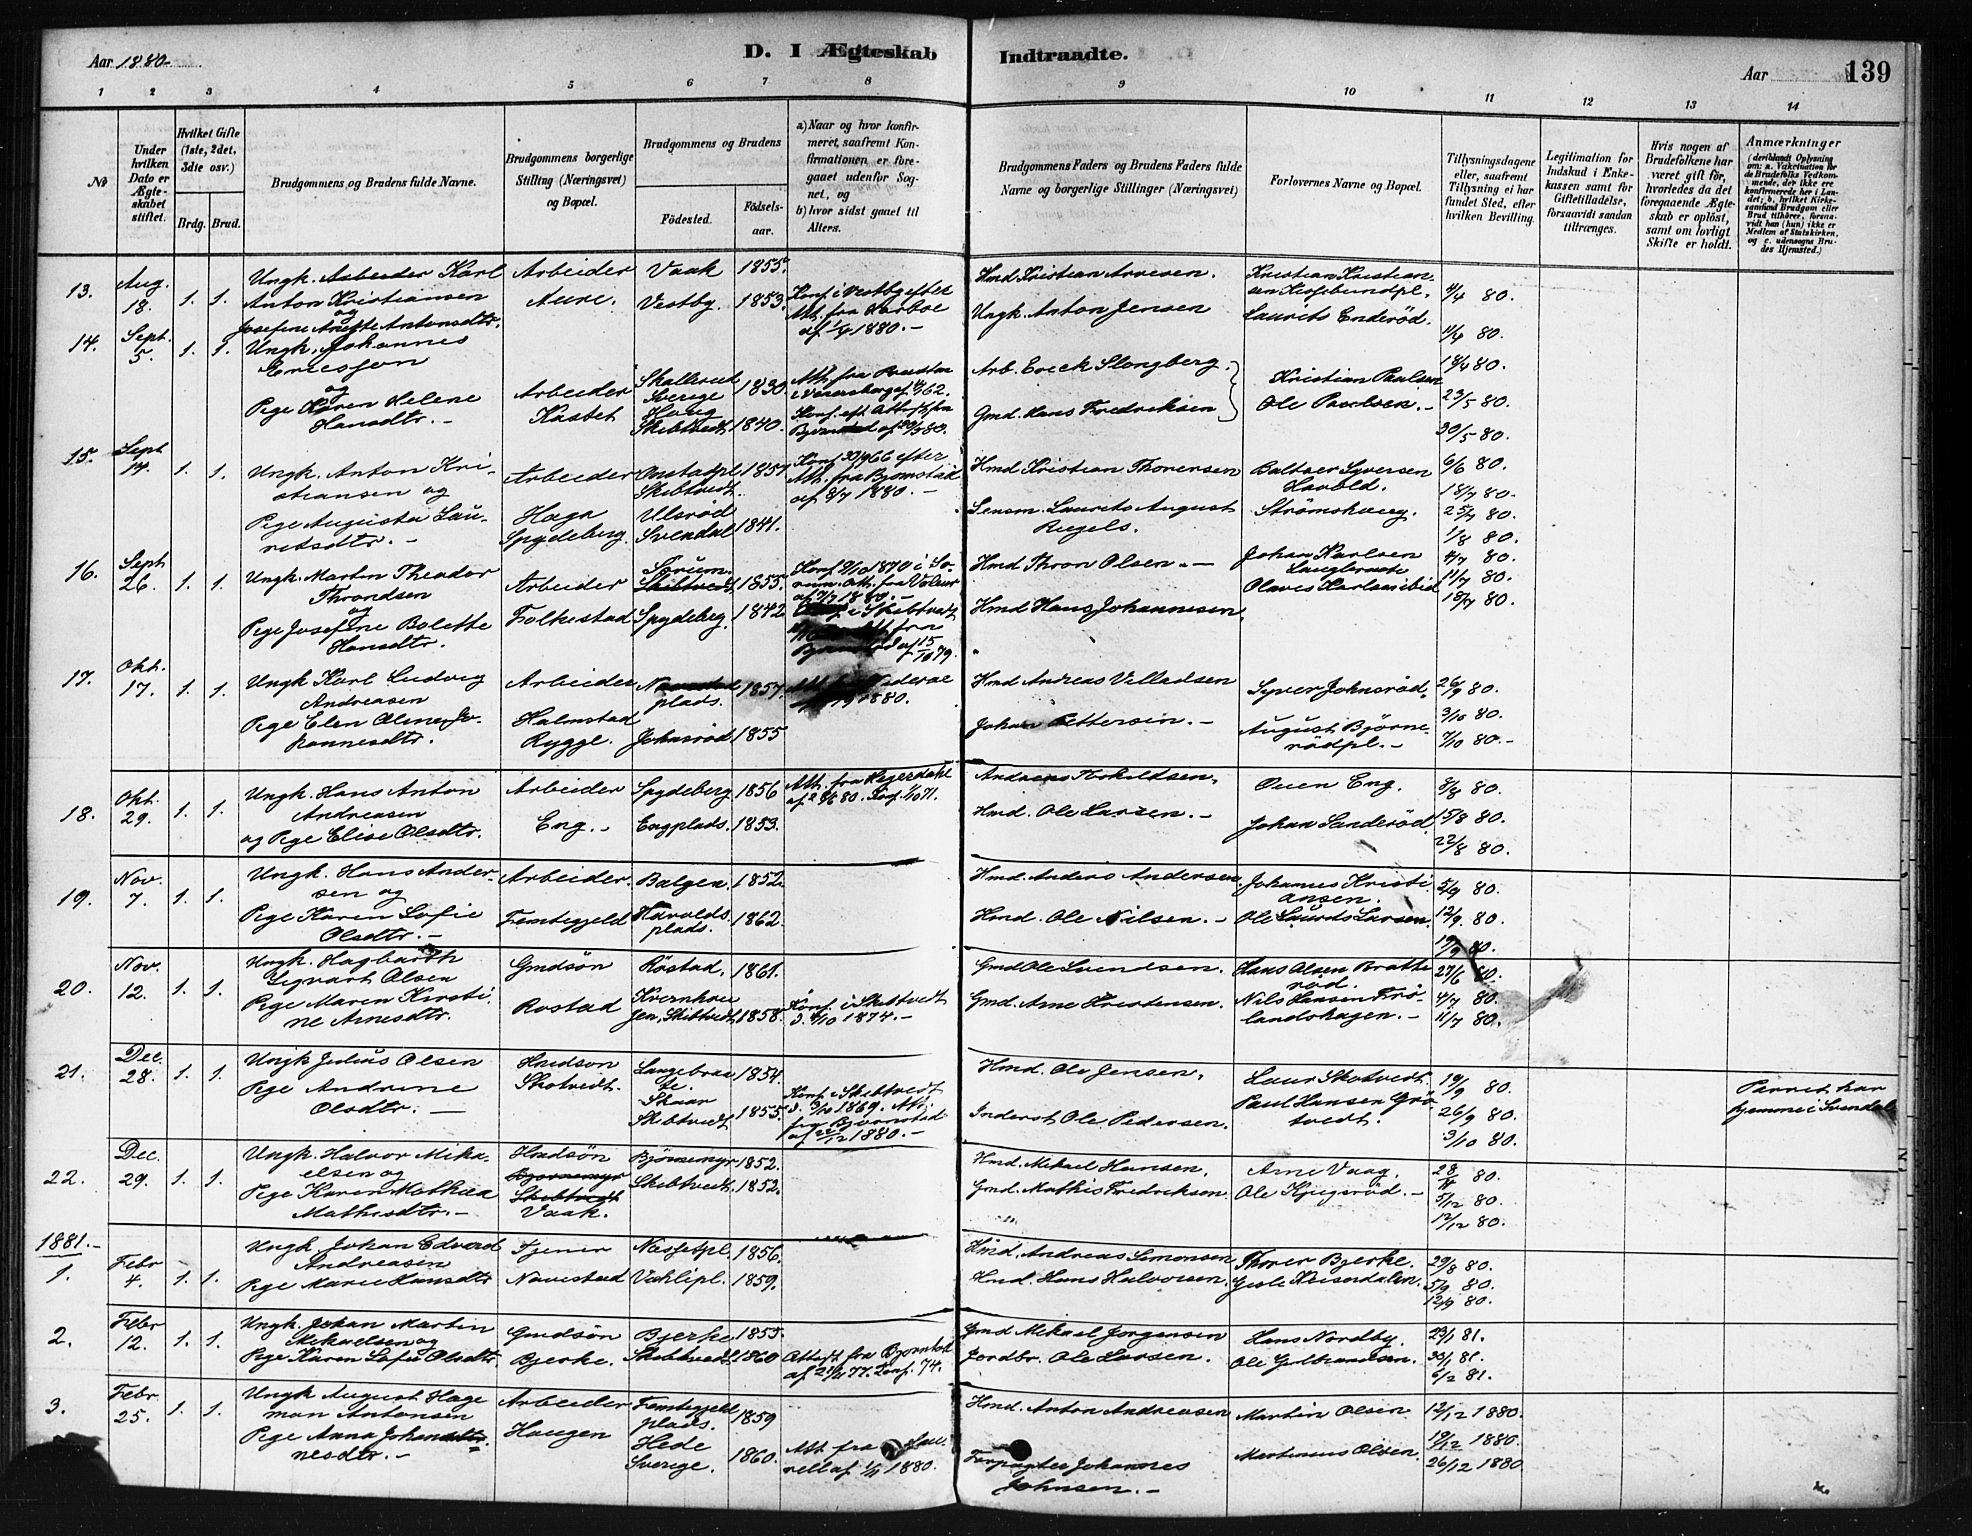 Aar 1880.
D. I Ægteskab
Indtraadte.
Aar
139
1 2 3 4 5 6 7 8 9 10 11 12 13 14
No
Under hvilken Dato er Ægteskabet stiftet.
Hvilket Gifte (1ste, 2det, 3die osv.)
Brdg. Brud.
Brudgommens og Brudens fulde Navne.
Brudgommens borgerlige Stilling (Næringsvei) og Bopæl.
Brudgommens og Brudens
Fødested.
Fødselsaar.
a) Naar og hvor konfirmeret, saafremt Konfirmationen er foregaaet udenfor Sognet, og
b) hvor sidst gaaet til Alters.
Brudgommens Faders og Brudens Faders fulde Navne og borgerlige Stillinger (Næringsvei)
Forlovernes Navne og Bopæl.
Tillysningsdagene eller, saafremt Tillysning ei har fundet Sted, efter hvilken Bevilling.
Legitimation for Indskud i Enkekassen samt for Giftetilladelse, forsaavidt saadan tiltrænges.
Hvis nogen af Brudefolkene har været gift før, hvorledes da det foregaaende Ægteskab er opløst, samt om lovligt Skifte er holdt.
Anmærkninger
(deriblandt Oplysning om: a. Vakcination for de Brudefolks Vedkommende, der ikke ere konfirmerede her i Landet; b. hvilket Kirkesamfund Brudgom eller Brud tilhører, forsaavidt han (hun) ikke er Medlem af Statskirken, og c. udensogns Brudes Hjemsted.)
13. Aug. 18. 1. 1. Ungk. Arbeider Karl Anton Kristiansen og Josefine Anette Antonsdtr. Arbeider Aure. Vaak 1855. Vestby. 1853. Konf. i Vestby efter Att. fra 1880.- Hmd Kristian Arvesen. Ungk. Anton Jensen Kristian Kristiansen Laurits Enderød. 4/4 80. 11/4 80. 18/4 80.
14. Sept. 5. 1. 1. Ungk. Johannes Ericsson og Pige Karen Helene Hansdtr.- Arbeider Kastet Sverige 1830. Haug Skibtvedt 1840. Arb. Erick Slongberg. Gmd. Hans Fredriksen Kristian Paulsen Ole Paulsen.- 23/5 80. 30/5 80. 6/6 80.
15. Sept 14. 1. 1. Ungk. Anton Kristiansen og Pige Augusta Lauritsdtr.- Arbeider Haga Spydeberg. Onstadpl Skibtvedt. 1851. Ulsrød Svendal 1841. Att. fra af 8/7 1880.- Hmd Kristian Thoresen Laurits August Riegels. Baltser Syversen Strømshaug. 18/7 80. 25/7 80. 1/8 80.
16. Sept 26. 1. 1. Ungk. Martin Theodor Throndsen og Pige Josefine Bolette Hansdtr. Arbeider Folkestad 1855. Spydeberg. 1842 Hmd Thron Olsen.- Hmd Hans Johannesen. Johan Karlsen Langbraate Olaves Karlsen ibid 4/7 80. 11/7 80. 18/7 80.
17. Okt. 17. 1. 1. Ungk Karl Ludvig Andreasen Pige Elen Oline Johannesdtr. Arbeider Halmstad Rygge. plads. 1857. Johnsrød 1855 1880. Hmd Andreas Villadsen Johan Pettersen.- Syver Johnsrød. August Bjørnerødpl.- 26/9 80. 3/10 80. 7/10 80.-
18. Okt. 29. 1. 1. Ungk. Hans Anton Andreasen og Pige Elise Olsdtr. Arbeider Eng.- Spydeberg 1856 Engplads. 1853. Att. fra 80. Konf. 1/10 71. Andreas Hmd. Ole Larsen.- Ouen Eng. Johan Sanderød. 8/8 80. 15/8 80. 22/8 80.
19. Nov. 7. 1. 1. Ungk. Hans Andersen og Pige Karen Sofie Olsdtr.- Arbeider. Femtegjeld Balgen. 1852. Harolds plads. 1862. Hmd. Anders Andersen. Hmd. Ole Nilsen.- Johannes Kristiansen. Ole Laurits Larsen. 5/9 80. 12/9 80. 19/9 80.
20. Nov. 12. 1. 1. Ungk. Hagbarth Sigvart Olsen Pige Maren Kirstine Arnesdtr. Gmdsøn Rostad Røstad. 1861. Skibtvedt 1858. Konf. i Skibtvedt d. 4/10 1874.- Gmd Ole Svendsen. Gmd. Arne Kristensen. Hans Olsen Bratterød. Nils Hansen Frølandshagen.- 27/6 80. 4/7 80. 11/7 80.
21. Dec. 28. 1. 1. Ungk Julius Olsen Pige Andrine Olsdtr.- Hmdson Skotvedt. Langebraate. 1854. Skaar Skibtvedt 1855. Konf. i Skibtvedt d. 3/10 1869. Att. fra Bjørnstad af 22/12 1880.- Hmd. Ole Jensen. Inderst Ole Pedersen. Laur Skotvedt. Paul Hansen Grøtvedt. 19/9 80. 26/9 80. 3/10 80. Parret har hjemme i Svendal
22. Dec. 29. 1. 1. Ungk. Halvor Mikaelsen og Pige Karen Mathea Mathisdtr.- Hmdsøn Bjørnemyr Skibtvedt Vaak. Bjørnemyr 1852. Skibtvedt. 1852. Hmd. Mikael Hansen. Gmd. Mathis Fredriksen. Arne Vaag. Ole Kjugsrød.- 28/11 80. 5/12 80. 12/12 80.
1881.-
1. Febr 4. 1. 1. Ungk. Johan Edvard Andreasen Pige Marie Hansdtr Tjener Navestad Næssetpl. 1856. Vahlipl. 1859. Hmd. Andreas Simonsen Hmd. Hans Halvorsen. Thorer Bjerke. 29/8 80. 5/9 80. 12/9 80.
2. Febr 12. 1. 1. Ungk. Johan Martin Mikaelsen og Pige Karen Sofie Olsdtr. Gmdsøn Bjerke. Bjerke 1855. Skibtvedt 1860 Attest fra 77. Konf. 74. Gmd Mikael Jørgensen Jordbr. Ole Larsen. Hans Nordby. Ole Gulbrandsen. 23/1 81. 30/1 81. 6/2 81.
3. Febr. 25. 1. 1. Ungk August Hageman Antonsen Pige Anna Johannesdtr.- Arbeider Haugen Femtegjeld plads. 1859 Hede Sverige. 1860. Att. fra 1880. Hmd. Anton Andreasen Forpagter Johannes Johnsen.- Martin Olsen Martinius Olsen. 12/12 1880. 19/12 1880. 26/12 1880